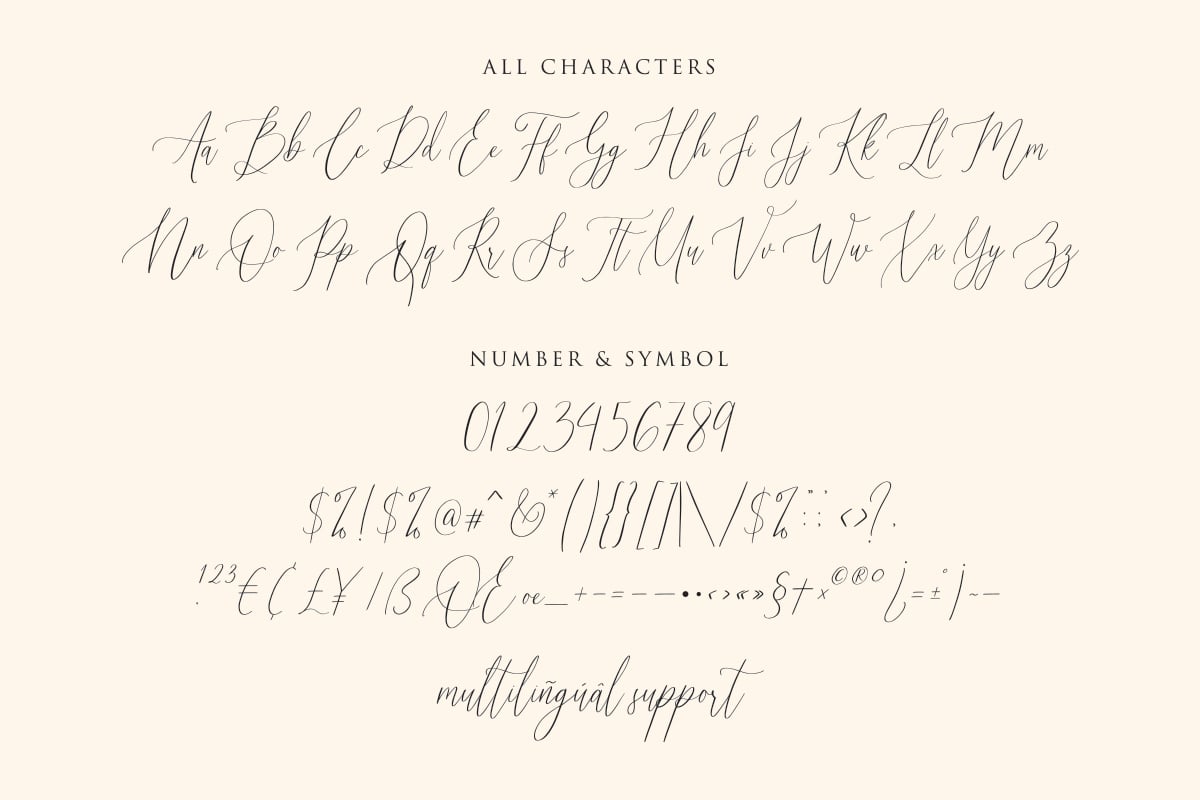 ALL CHARACTERS
Aa Bb Cc Dd Ee Ff Gg Hh Ii Jj Kk Ll Mm
Nn Oo Pp Qq Rr Ss Tt Uu Vv Ww Xx Yy Zz
NUMBER & SYMBOL
0123456789
$%!$%@#^&*(){}[]|\/$%:;"'<>?.
.¹²³€₵£¥/ßŒœ_+-=——••‹›«»§†×©®º¿=±°¡~—
multiliñgúâl support